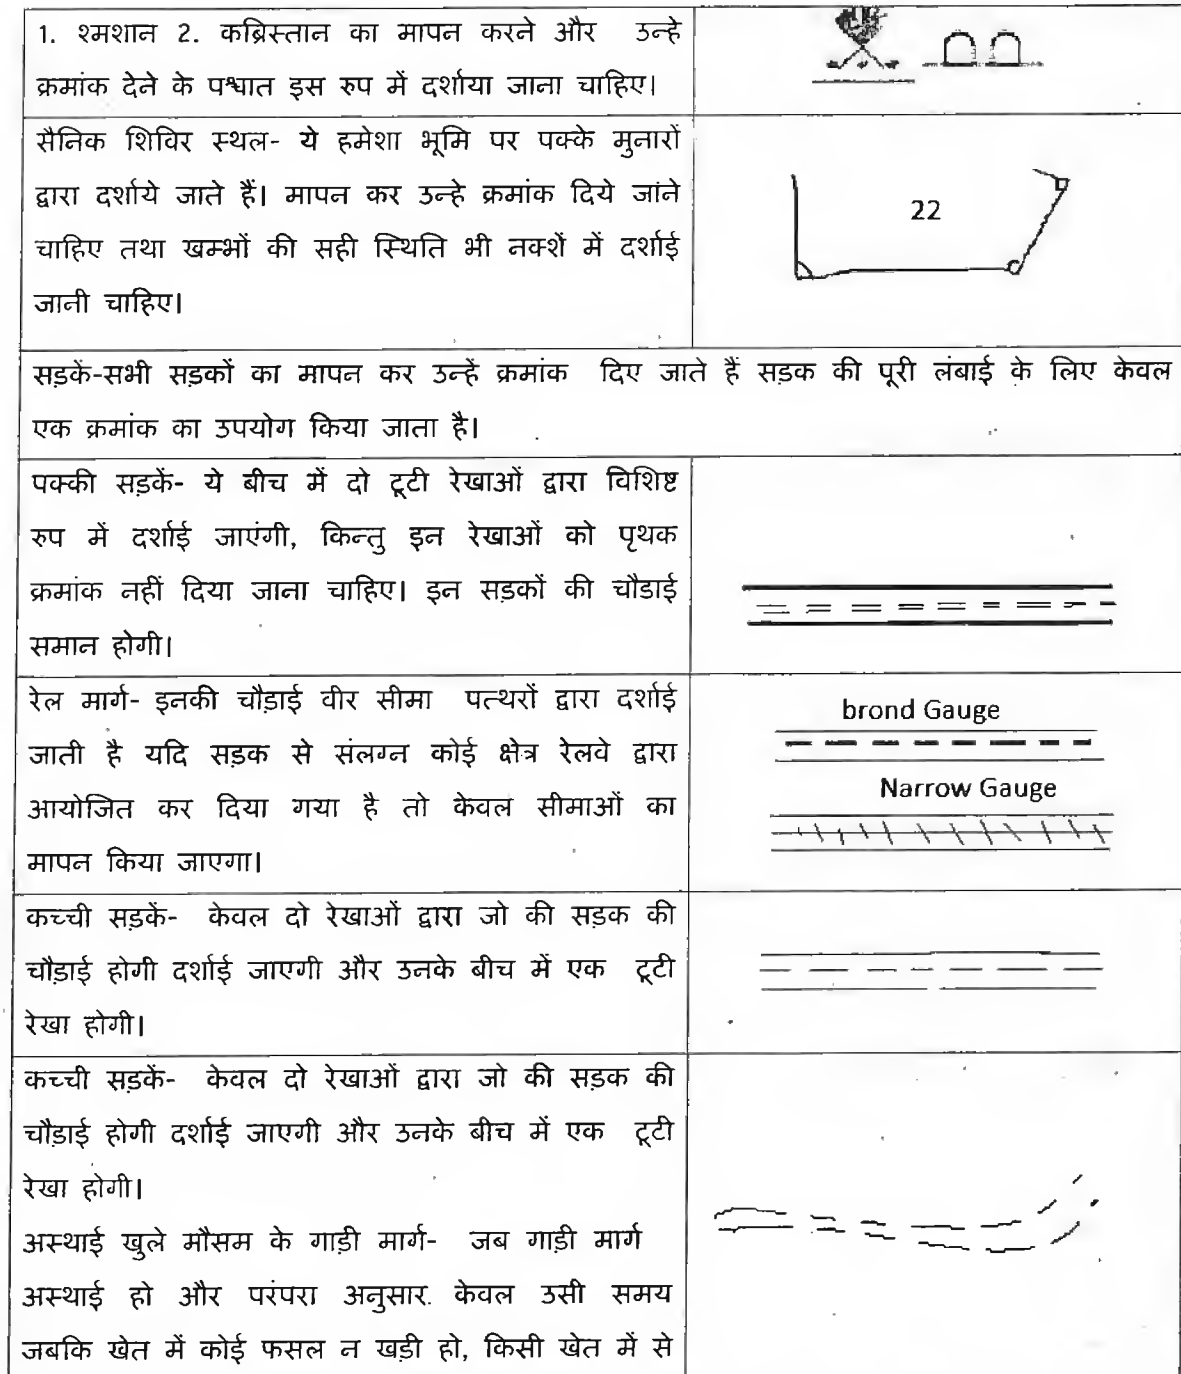 1. श्मशान 2. कब्रिस्तान का मापन करने और उन्हे
क्रमांक देने के पश्चात इस रुप में दर्शाया जाना चाहिए।
सैनिक शिविर स्थल- ये हमेशा भूमि पर पक्के मुनारों
द्वारा दर्शाये जाते हैं। मापन कर उन्हे क्रमांक दिये जांने
चाहिए तथा खम्भों की सही स्थिति भी नक्शें में दर्शाई
जानी चाहिए।
22
सड़कें-सभी सड़कों का मापन कर उन्हें क्रमांक दिए जाते हैं सड़क की पूरी लंबाई के लिए केवल
एक क्रमांक का उपयोग किया जाता है।
पक्की सड़कें- ये बीच में दो टूटी रेखाओं द्वारा विशिष्ट
रुप में दर्शाई जाएंगी, किन्तु इन रेखाओं को पृथक
क्रमांक नहीं दिया जाना चाहिए। इन सड़कों की चौडाई
समान होगी।
रेल मार्ग- इनकी चौड़ाई वीर सीमा पत्थरों द्वारा दर्शाई
जाती है यदि सड़क से संलग्न कोई क्षेत्र रेलवे द्वारा
आयोजित कर दिया गया है तो केवल सीमाओं का
मापन किया जाएगा।
brond Gauge
Narrow Gauge
कच्ची सड़कें- केवल दो रेखाओं द्वारा जो की सड़क की
चौड़ाई होगी दर्शाई जाएगी और उनके बीच में एक टूटी
रेखा होगी।
कच्ची सड़कें- केवल दो रेखाओं द्वारा जो की सड़क की
चौड़ाई होगी दर्शाई जाएगी और उनके बीच में एक टूटी
रेखा होगी।
अस्थाई खुले मौसम के गाड़ी मार्ग- जब गाड़ी मार्ग
अस्थाई हो और परंपरा अनुसार. केवल उसी समय
जबकि खेत में कोई फसल न खड़ी हो, किसी खेत में से